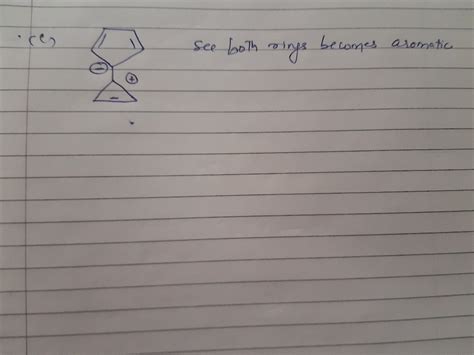 (e) see both rings becomes aromatic